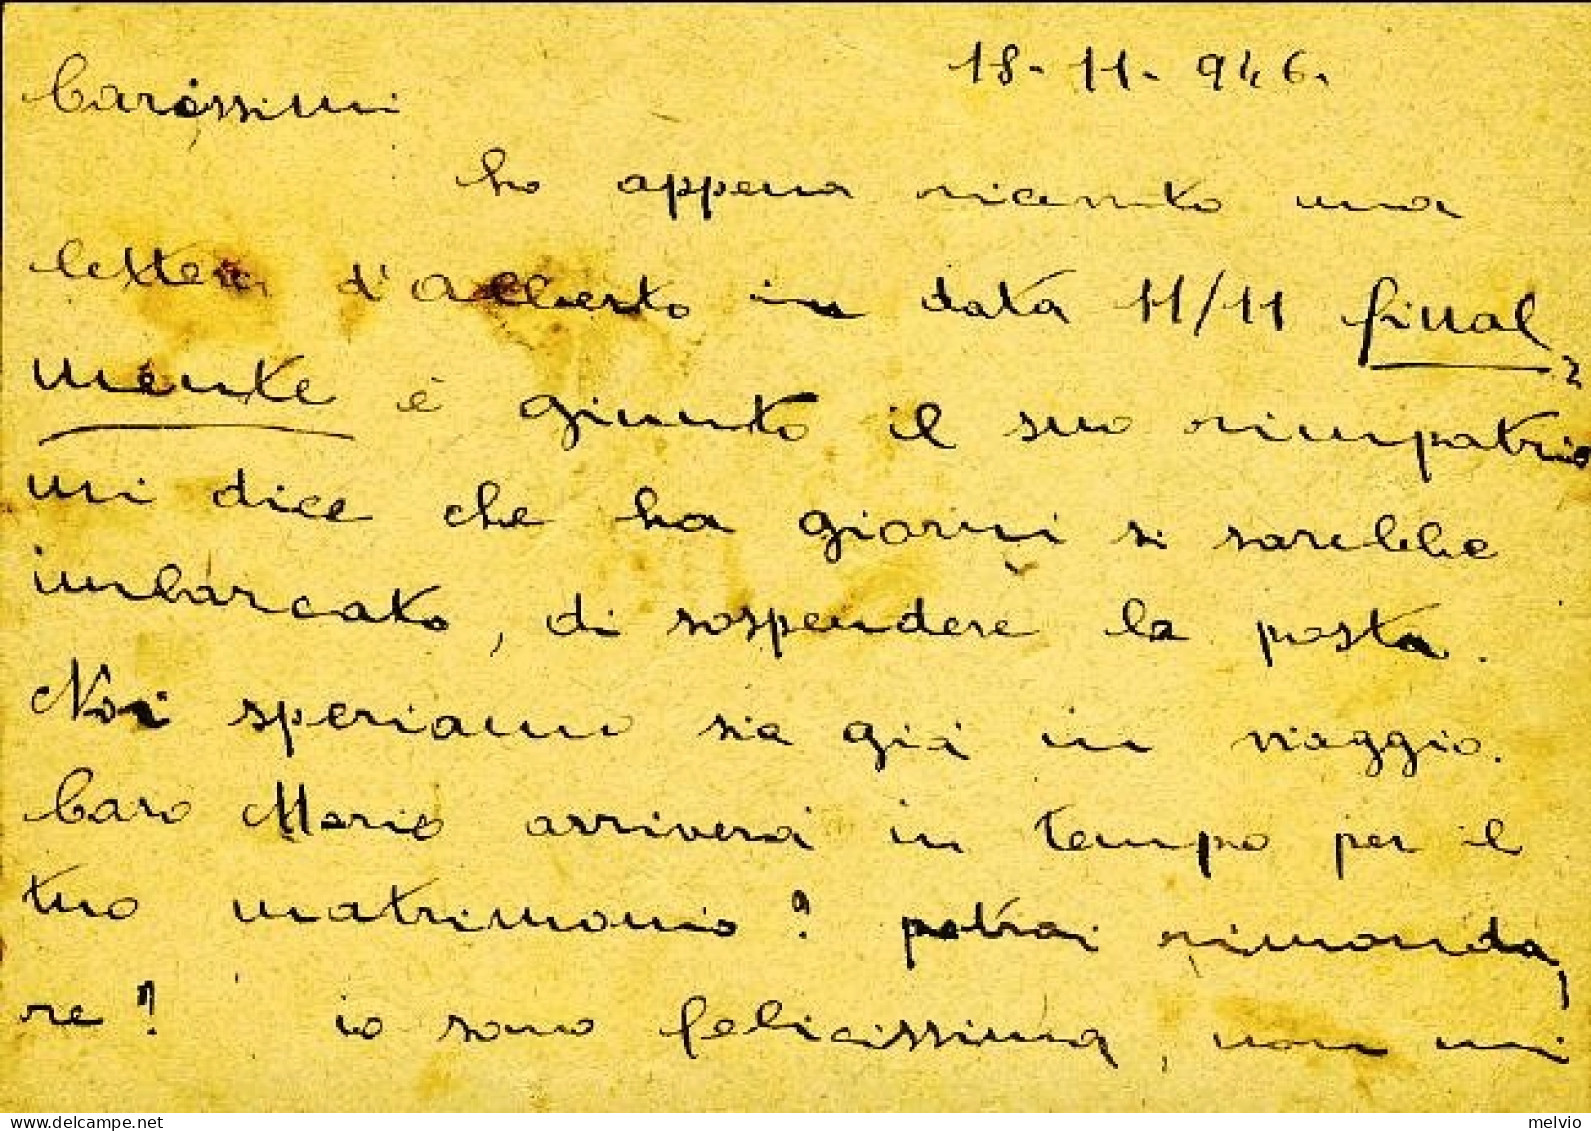 18-11-946.
Carissimi
ho appena ricevuto una
lettera d'Alberto in data 11/11 final=
mente è giunto il suo rimpatrio
mi dice che ha giorni si sarebbe
imbarcato, di sospendere la posta.
Noi speriamo sia già in viaggio.
Caro Mario arriverà in tempo per il
tuo matrimonio? potrai rimanda,
re? io sono felicissima, non mi
www.delcampe.net
melvio